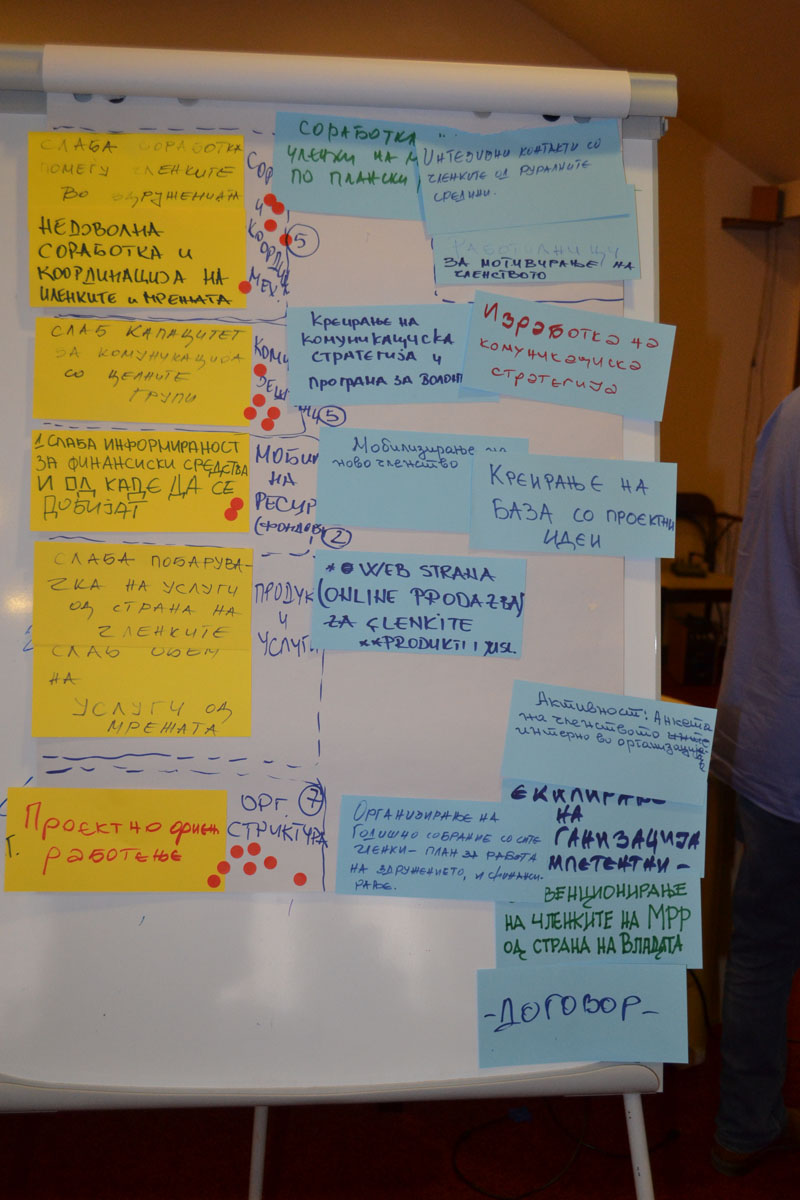 СЛАБА СОРАБОТКА
ПОМЕГУ ЧЛЕНКИТЕ
ВО ЗДРУЖЕНИЈАТА
НЕДОВОЛНА
СОРАБОТКА И
КООРДИНАЦИЈА НА
ЧЛЕНКИТЕ И МРЕЖАТА
СОР
И
КООРДИ
МЕХ.
5
СОРАБОТКА
ЧЛЕНКИ НА М
ПО ПЛАНСКИ
ИНТЕЗИВНИ КОНТАКТИ СО
ЧЛЕНКИТЕ ОД РУРАЛНИТЕ
СРЕДИНИ.
РАБОТИЛНИЦИ
ЗА МОТИВИРАЊЕ НА
ЧЛЕНСТВОТО
СЛАБ КАПАЦИТЕТ
ЗА КОМУНИКАЦИЈА
СО ЦЕЛНИТЕ
ГРУПИ
КОМУ
5
КРЕИРАЊЕ НА
КОМУНИКАЦИСКА
СТРАТЕГИЈА И
ПРОГРАМА ЗА ВОЛОНТ
ИЗРАБОТКА НА
КОМУНИКАЦИСКА
СТРАТЕГИЈА
1. СЛАБА ИНФОРМИРАНОСТ
ЗА ФИНАНСИСКИ СРЕДСТВА
И ОД КАДЕ ДА СЕ
ДОБИЈАТ
МОБИЛ
НА
РЕСУР
(ФОНДОВИ
2
Мобилизирање на
ново членство
КРЕИРАЊЕ НА
БАЗА СО ПРОЕКТНИ
ИДЕИ
СЛАБА ПОБАРУВА-
ЧКА НА УСЛУГИ
ОД СТРАНА НА
ЧЛЕНКИТЕ
СЛАБ ОБЕМ
НА
УСЛУГИ ОД
МРЕЖАТА
ПРОДУК
И
УСЛУГИ
* WEB STRANA
(ONLINE PRODAZBA)
ZA ČLENKITE
**PRODUKTI I USL.
Проектно ориен
работење
7
ОРГ.
СТРУКТУРА
ОРГАНИЗИРАЊЕ НА
ГОДИШНО СОБРАНИЕ СО СИТЕ
ЧЛЕНКИ – ПЛАН ЗА РАБОТА
НА ЗДРУЖЕНИЕТО, И ФИНАНСИ-
РАЊЕ.
Активност: Анкета
на членството
интерно во организација
ЕКИПИРАЊ
НА
ГАНИЗАЦИЈА
МПЕТЕНТНИ –
ВЕНЦИОНИРАЊЕ
НА ЧЛЕНКИТЕ НА МРР
ОД СТРАНА НА ВЛАДАТА
–ДОГОВОР–